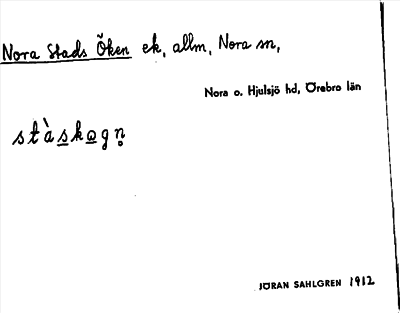 Nora Stads Öken ek, allm, Nora sn,
Nora o. Hjulsjö hd, Örebro län
stàskogn
JÖRAN SAHLGREN 1912